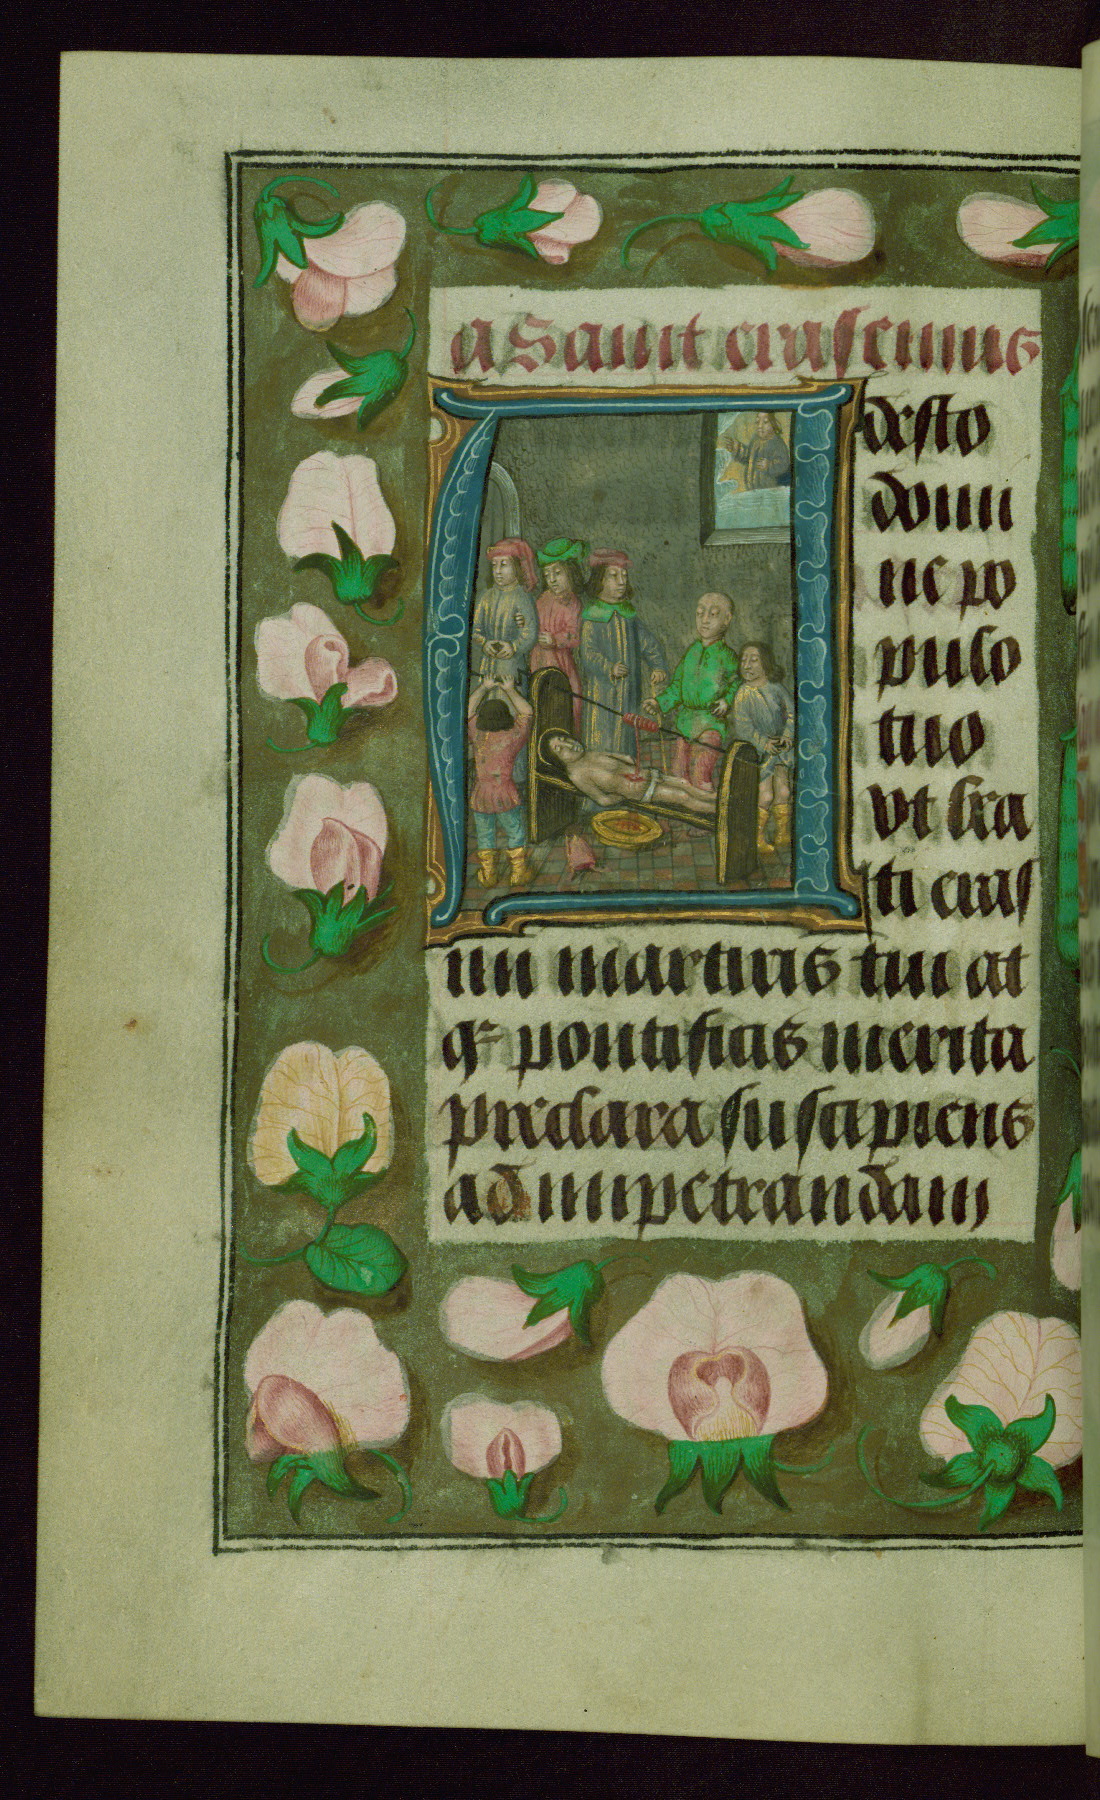 a Saint erascimus
Adesto
domi
ne po
pulo
tuo
vt bea
ti eras
mi martiris tui at
qꝫ pontificis merita
preclara suscipiens
ad impetrandam